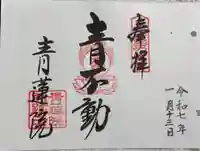 奉拝
令和七年
一月十三日
青不動
青蓮院